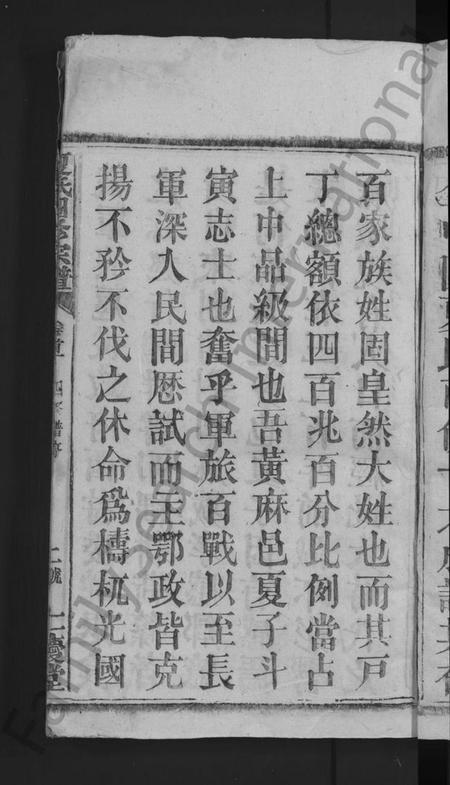 百家族姓固皇然大姓也而其戸
丁總額依四百兆百分比例當占
上中品級間也吾黃麻邑夏子斗
寅志士也奮乎軍旅百戰以至長
軍深入民間歷試而主鄂政皆克
揚不矜不伐之休命爲檮杌光國
夏氏四修宗譜 卷首 四修譜序 二號
FamilySearch International